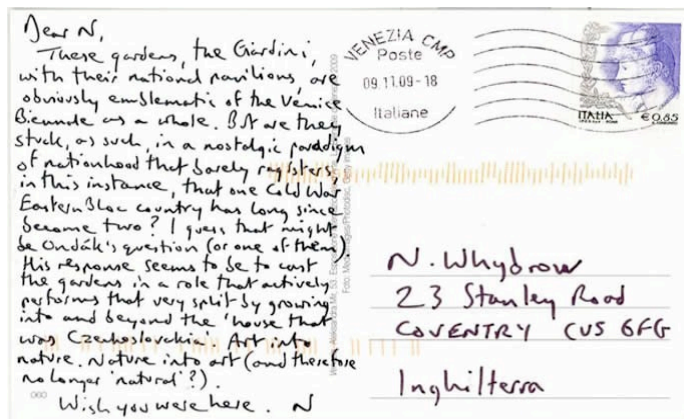 Dear N,
These gardens, the Giardini,
with their national pavilions, are
obviously emblematic of the Venice
Biennale as a whole. But are they
stuck, as such, in a nostalgic paradigm
of nationhood that barely registers,
in this instance, that one Cold War
Eastern Bloc country has long since
become two? I guess that might
be Ondák's question (or one of them).
His response seems to be to cast
the gardens in a role that actively
performs that very split by growing
into and beyond the 'house that
was Czechoslovakia'. Art into
nature. Nature into art (and therefore
no longer 'natural'?).
Wish you were here. N
060
VENEZIA CMP
Poste
09.11.09-18
Italiane
ITALIA
€ 0,85
N. Whybrow
23 Stanley Road
COVENTRY CV5 6FG
Inghilterra